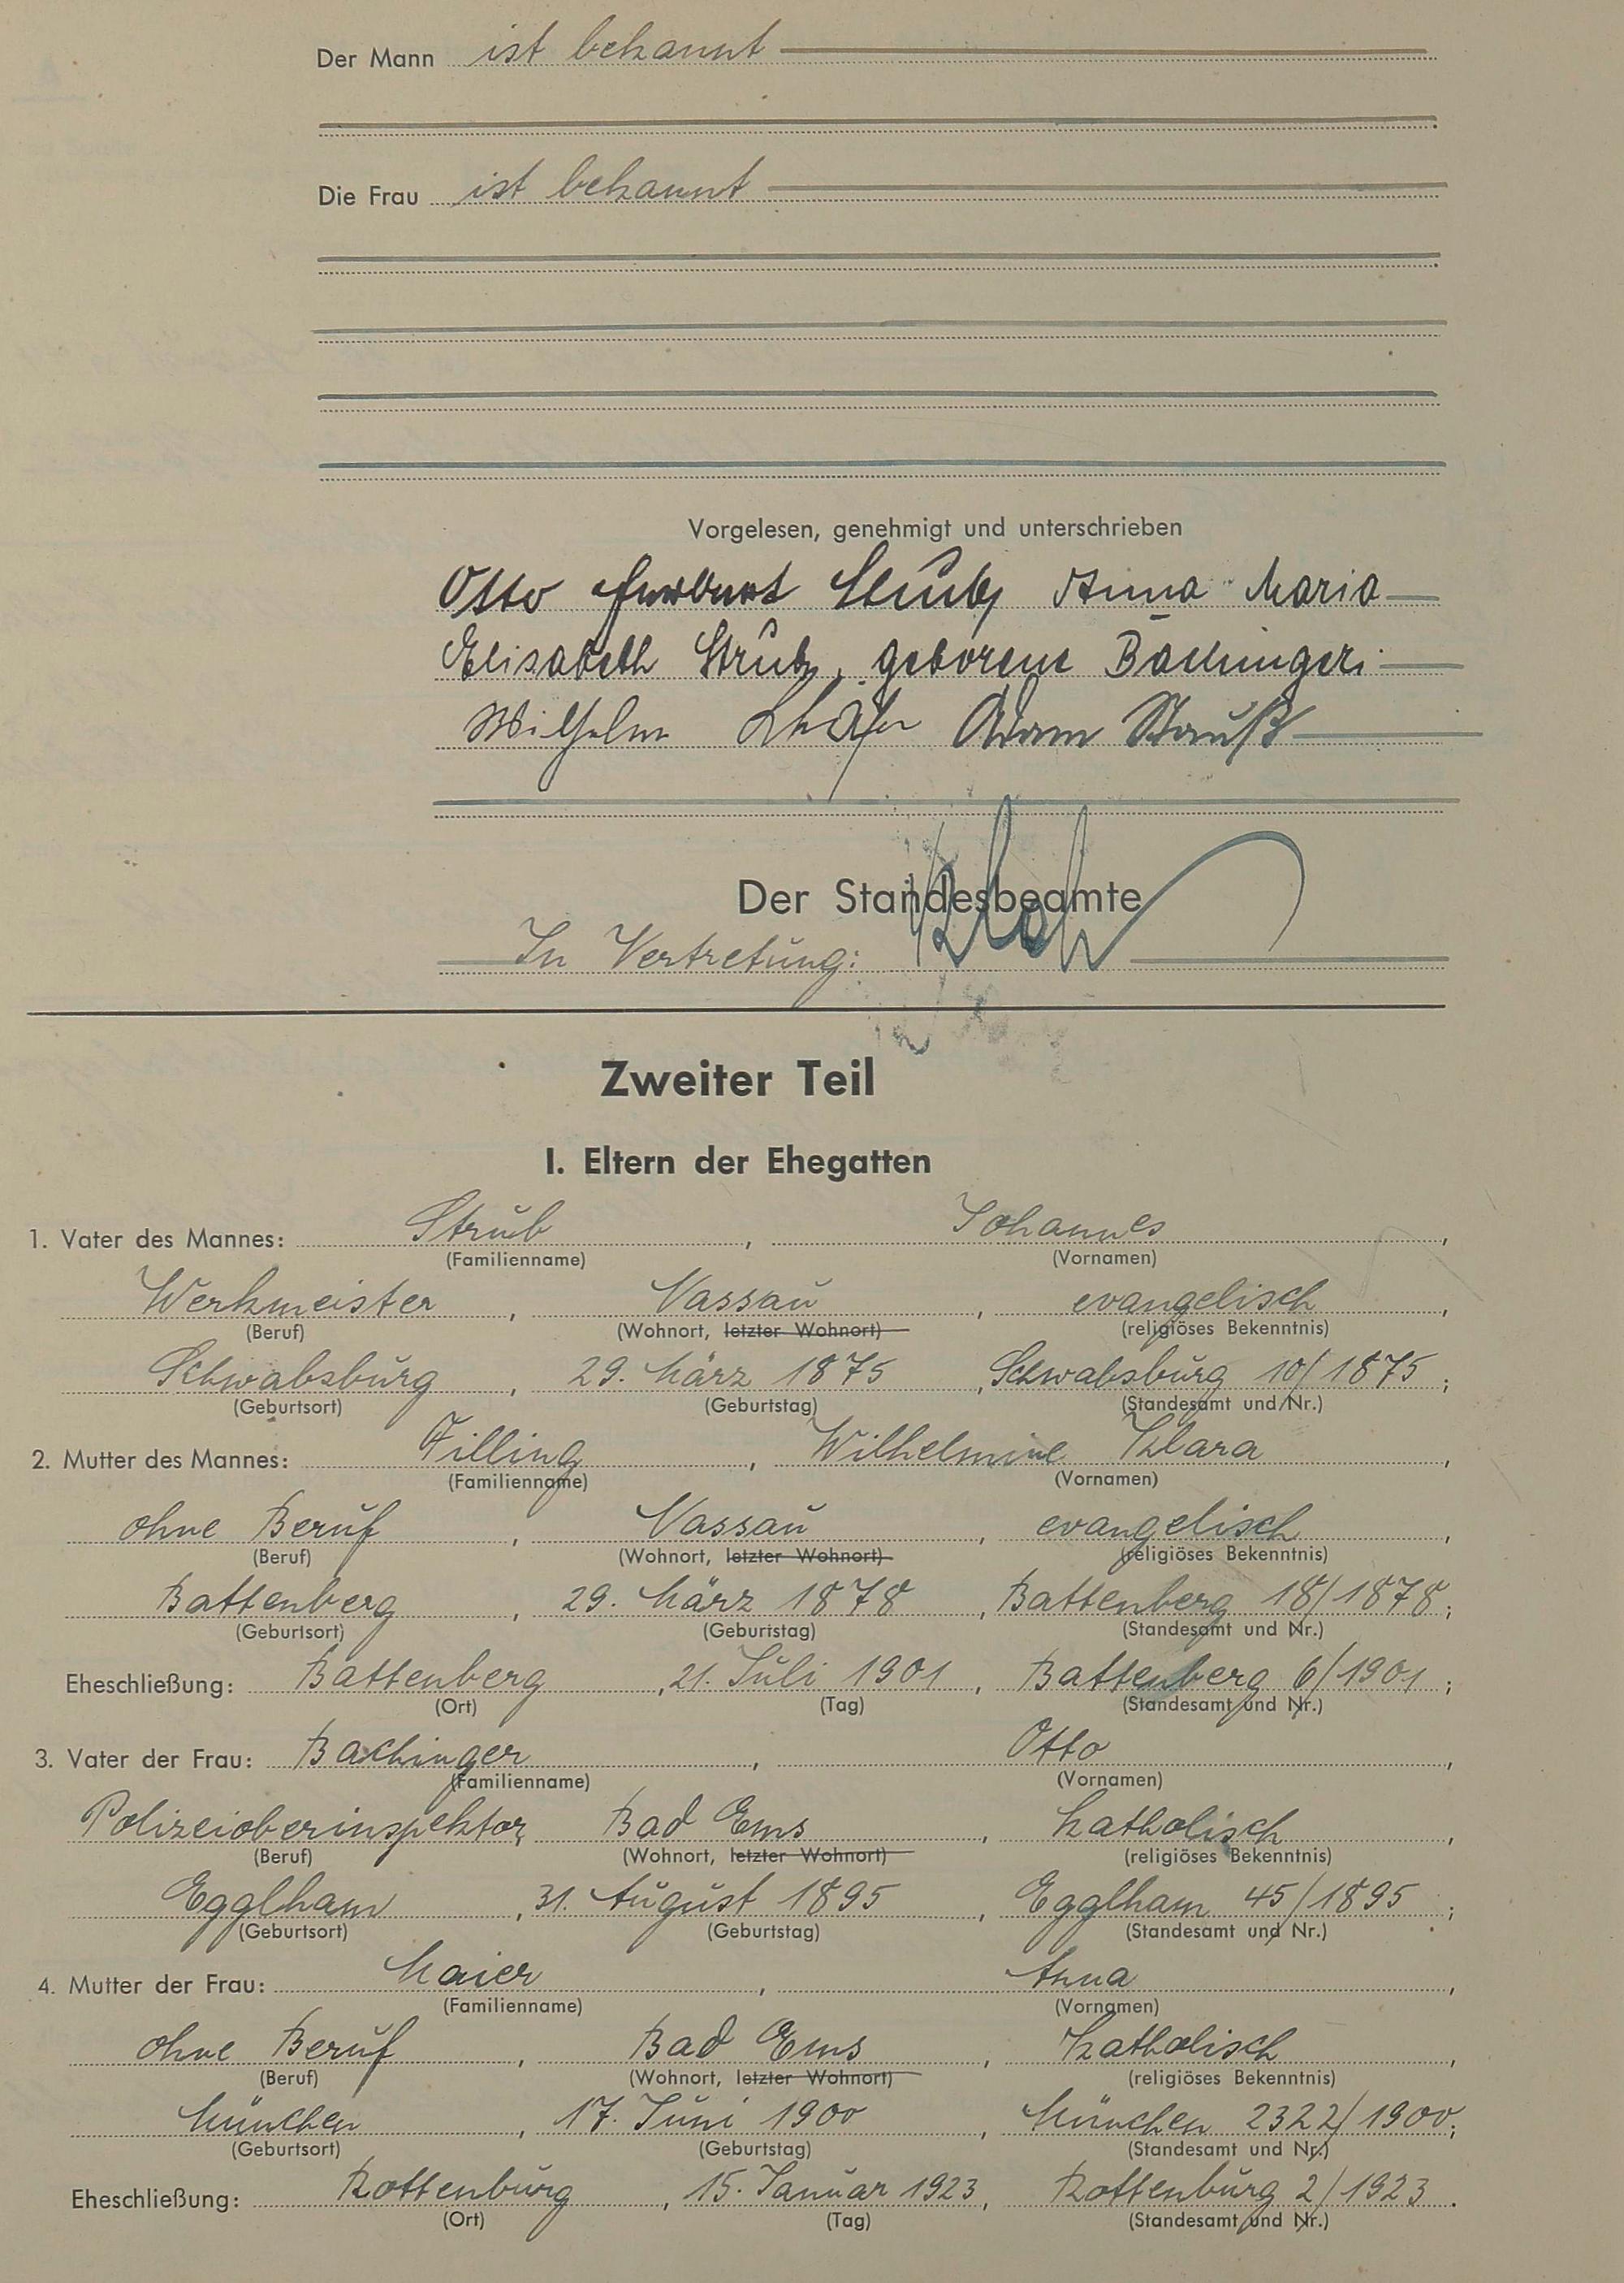 Der Mann ist bekannt
Die Frau ist bekannt
Vorgelesen, genehmigt und unterschrieben
Otto Herbert Strub, Anna Maria
Elisabeth Strub, geborene Bachinger
Wilhelm Schäfer Adam Strauß
Der Standesbeamte
In Vertretung:
Zweiter Teil
I. Eltern der Ehegatten
1. Vater des Mannes: Strub, Johannes,
(Familienname) (Vornamen)
Werkmeister, Nassau, evangelisch,
(Beruf) (Wohnort, letzter Wohnort) (religiöses Bekenntnis)
Schwabsburg, 29. März 1875, Schwabsburg 10/1875;
(Geburtsort) (Geburtstag) (Standesamt und Nr.)
2. Mutter des Mannes: Filling, Wilhelmine Klara,
(Familienname) (Vornamen)
ohne Beruf, Nassau, evangelisch,
(Beruf) (Wohnort, letzter Wohnort) (religiöses Bekenntnis)
Battenberg, 29. März 1878, Battenberg 18/1878;
(Geburtsort) (Geburtstag) (Standesamt und Nr.)
Eheschließung: Battenberg, 21. Juli 1901, Battenberg 6/1901;
(Ort) (Tag) (Standesamt und Nr.)
3. Vater der Frau: Bachinger, Otto,
(Familienname) (Vornamen)
Polizeioberinspektor, Bad Ems, katholisch,
(Beruf) (Wohnort, letzter Wohnort) (religiöses Bekenntnis)
Egglham, 31. August 1895, Egglham 45/1895;
(Geburtsort) (Geburtstag) (Standesamt und Nr.)
4. Mutter der Frau: Maier, Anna,
(Familienname) (Vornamen)
ohne Beruf, Bad Ems, katholisch,
(Beruf) (Wohnort, letzter Wohnort) (religiöses Bekenntnis)
München, 17. Juni 1900, München 2322/1900;
(Geburtsort) (Geburtstag) (Standesamt und Nr.)
Eheschließung: Rottenburg, 15. Januar 1923, Rottenburg 2/1923.
(Ort) (Tag) (Standesamt und Nr.)